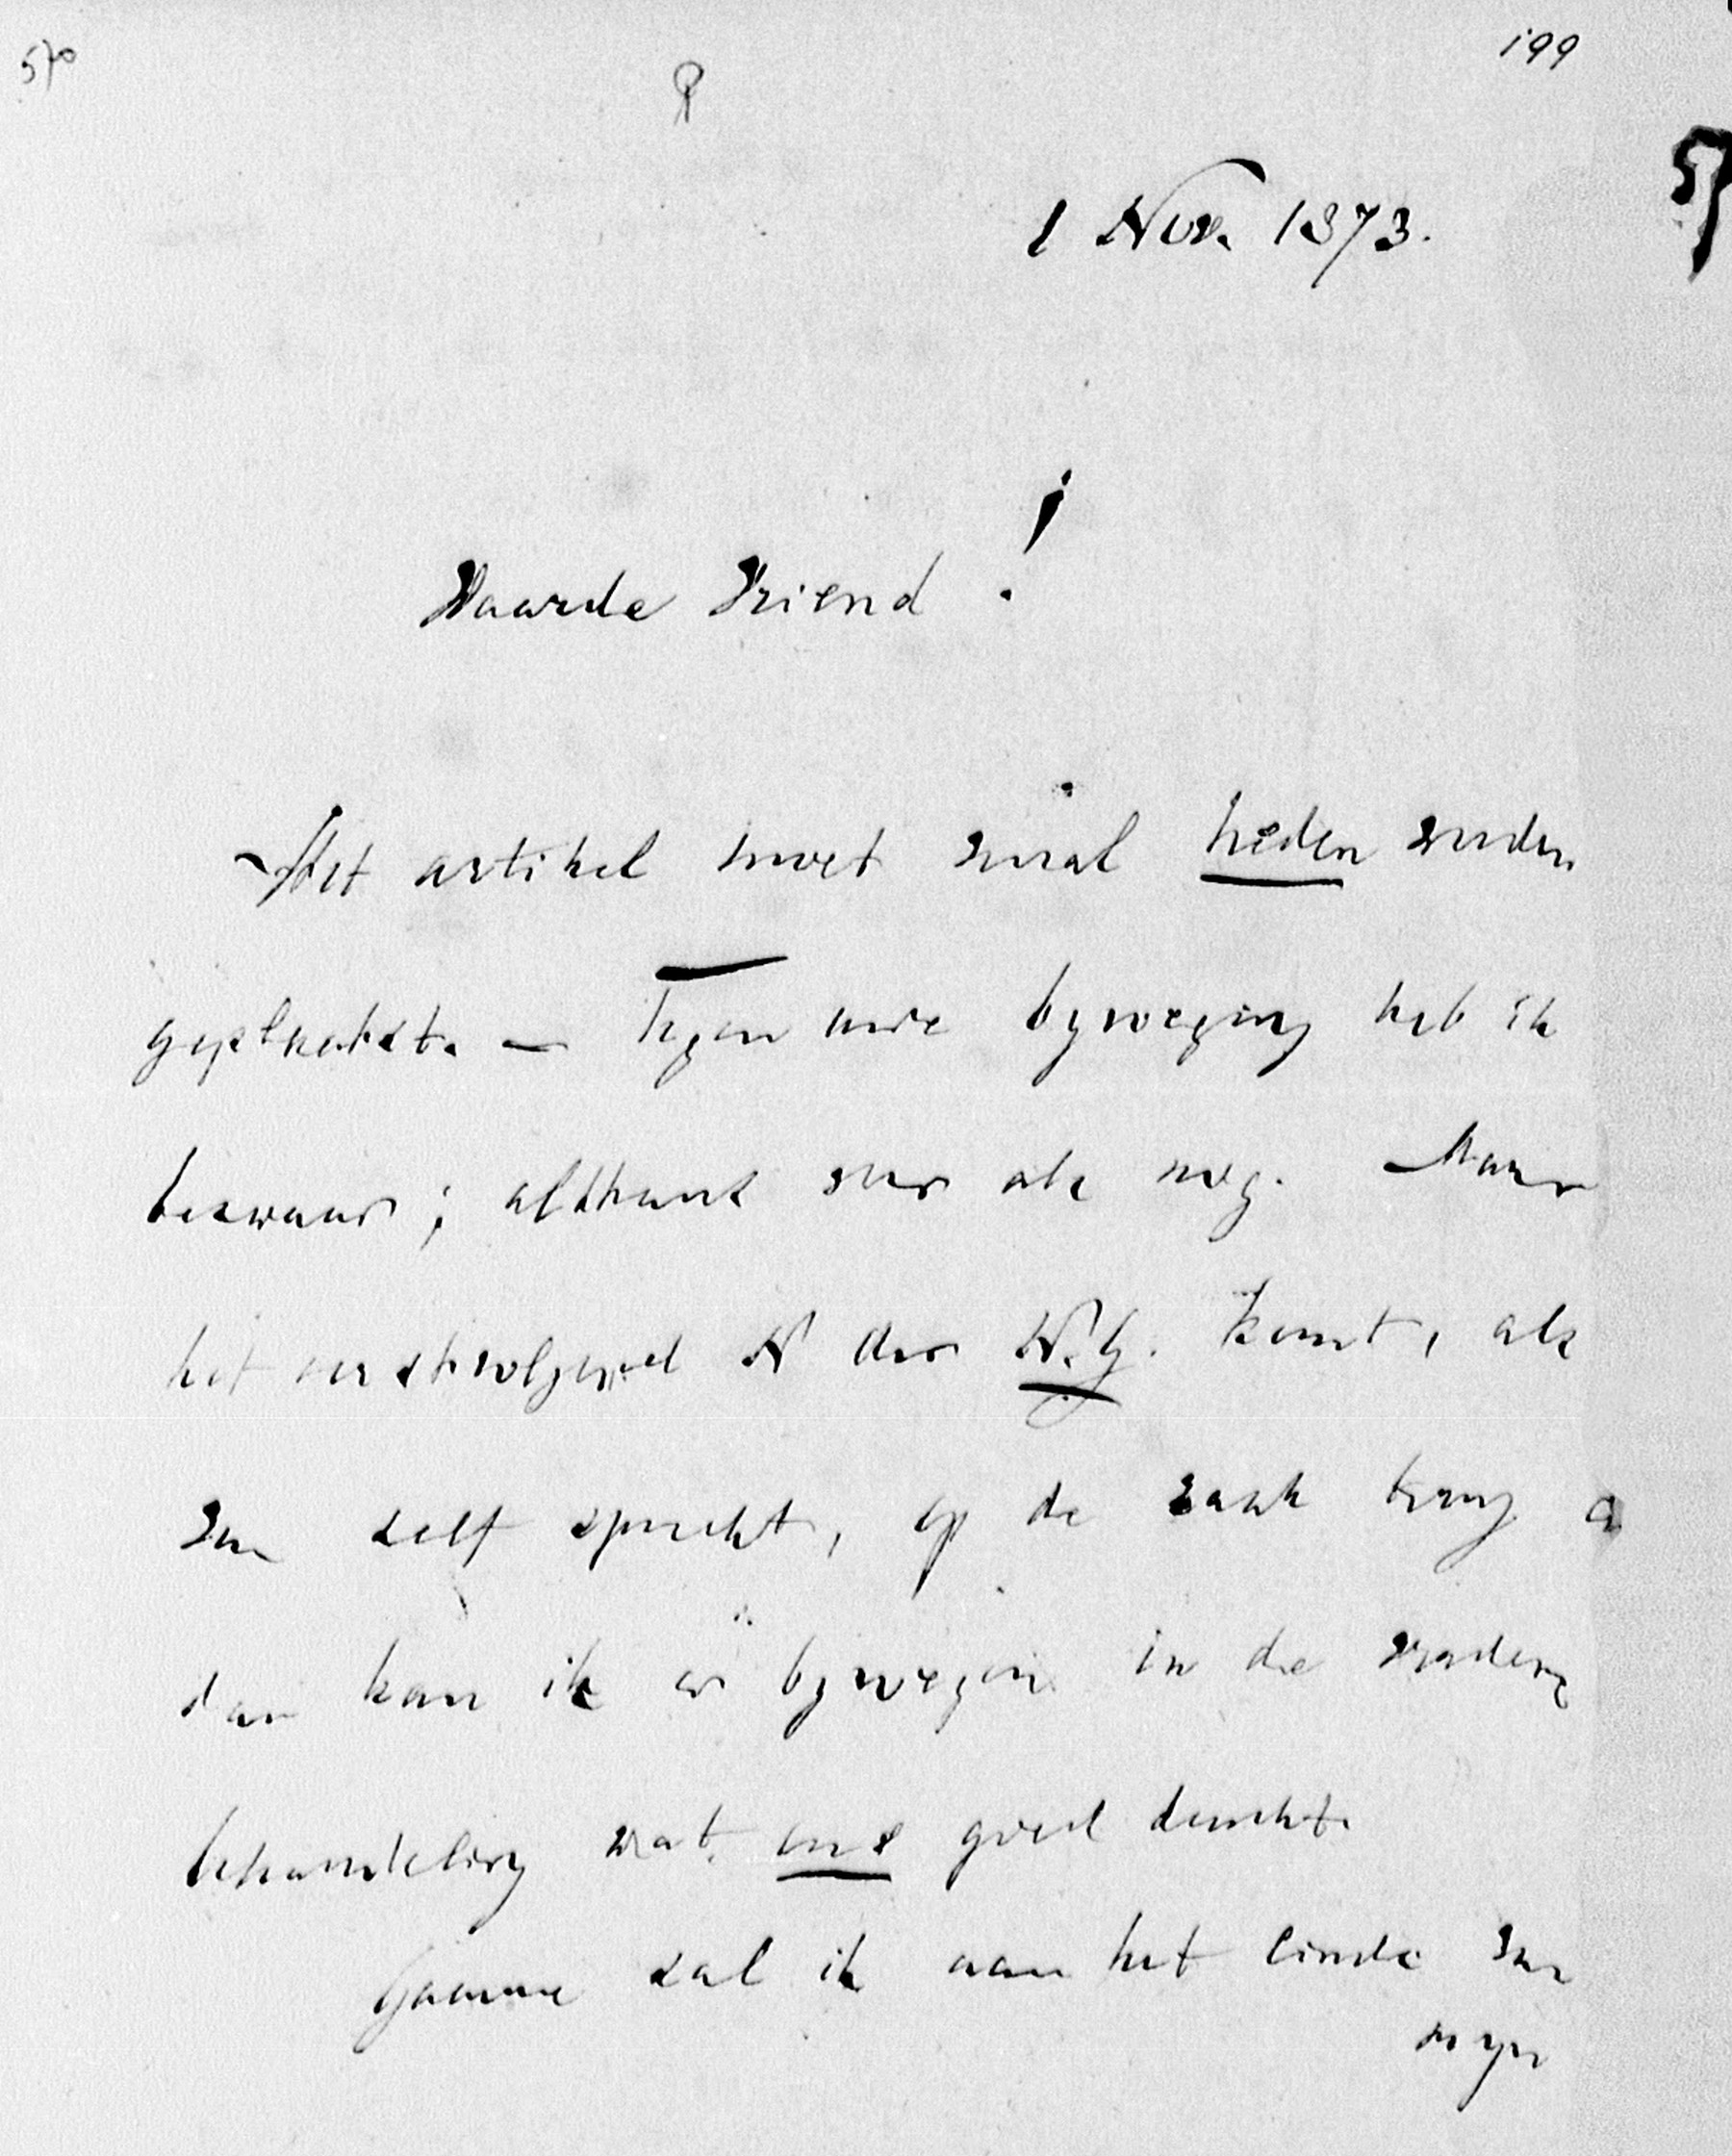 570
199
57
1 Nov. 1873.
Waarde Vriend!
Het artikel moet vooral heden worden
geplaatst. — Tegen uwe byvoeging heb ik
bezwaar; althans voor als nog. Maar
het eerstvolgend N der N.G. komt, als
van zelf spreekt, op de zaak terug
dan kan ik er byvoegen in de verdere
behandeling wat ons goed dunkt.
Gaarne zal ik aan het einde van
myn